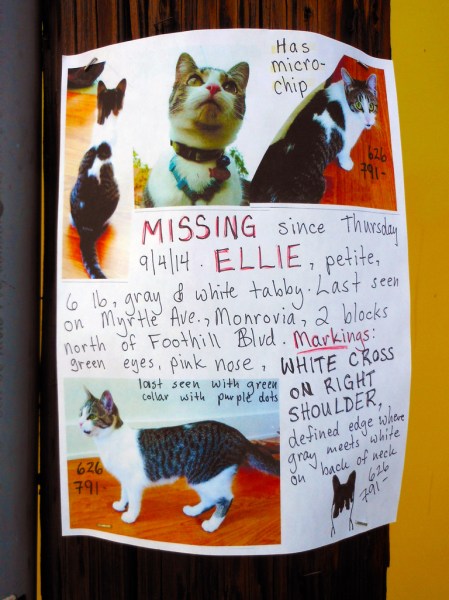 Has
micro-
chip
626
791-
MISSING since Thursday
9/4/14. ELLIE, petite,
6 lb, gray & white tabby. Last seen
on Myrtle Ave., Monrovia, 2 blocks
north of Foothill Blvd. Markings:
green eyes, pink nose, WHITE CROSS
ON RIGHT
SHOULDER,
defined edge where
gray meets white
on back of neck
last seen with green
collar with purple dots
626
791-
626
791-